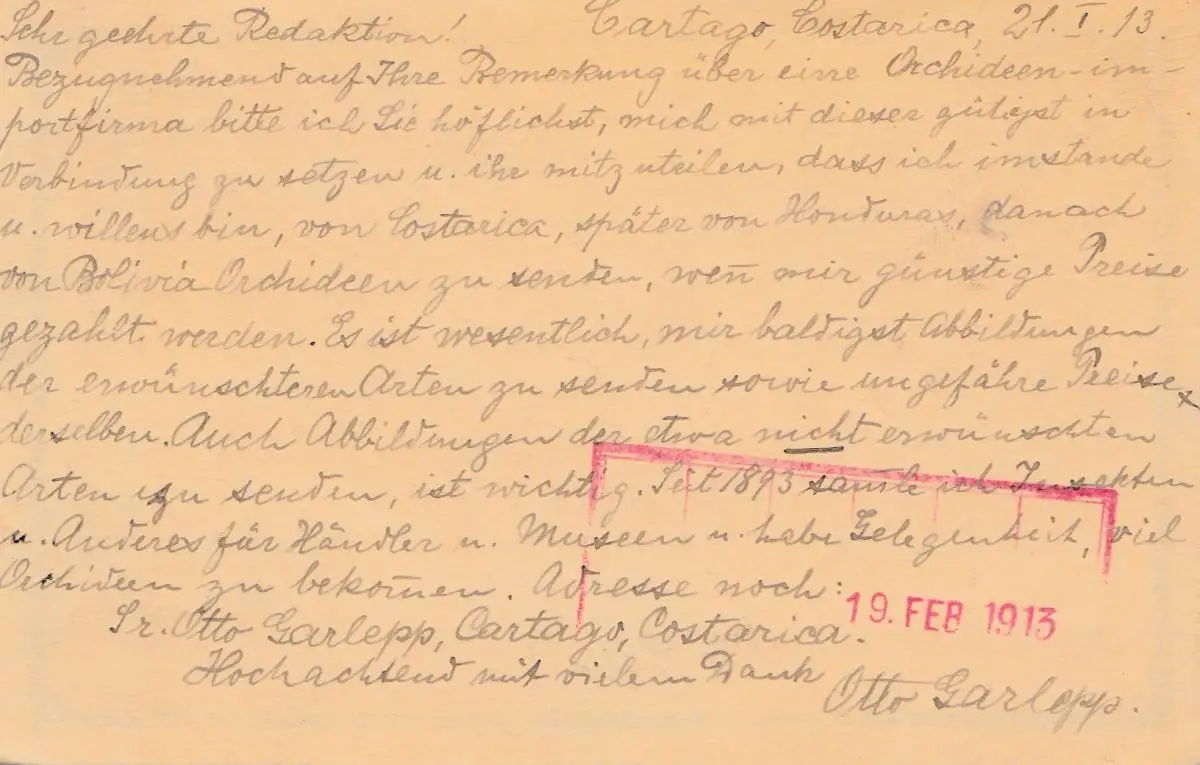 Sehr geehrte Redaktion! Cartago, Costarica, 21. I. 13.
Bezugnehmend auf Ihre Bemerkung über eine Orchideen-im-
portfirma bitte ich Sie höflichst, mich mit dieser gütigst in
Verbindung zu setzen u. ihr mitzuteilen, dass ich imstande
u. willens bin, von Costarica, später von Honduras, danach
von Bolivia Orchideen zu senden, wen̄ mir günstige Preise
gezahlt werden. Es ist wesentlich, mir baldigst Abbildungen
der erwünschteren Arten zu senden sowie ungefähre Preise
derselben. Auch Abbildungen der etwa nicht erwünschten
Arten zu senden, ist wichtig. Seit 1893 sam̄le ich Insekten
u. Anderes für Händler u. Museen u. habe Gelegenheit, viel
Orchideen zu bekom̄en. Adresse noch:
19. FEB 1913
Sr. Otto Garlepp, Cartago, Costarica.
Hochachtend mit vielem Dank
Otto Garlepp.